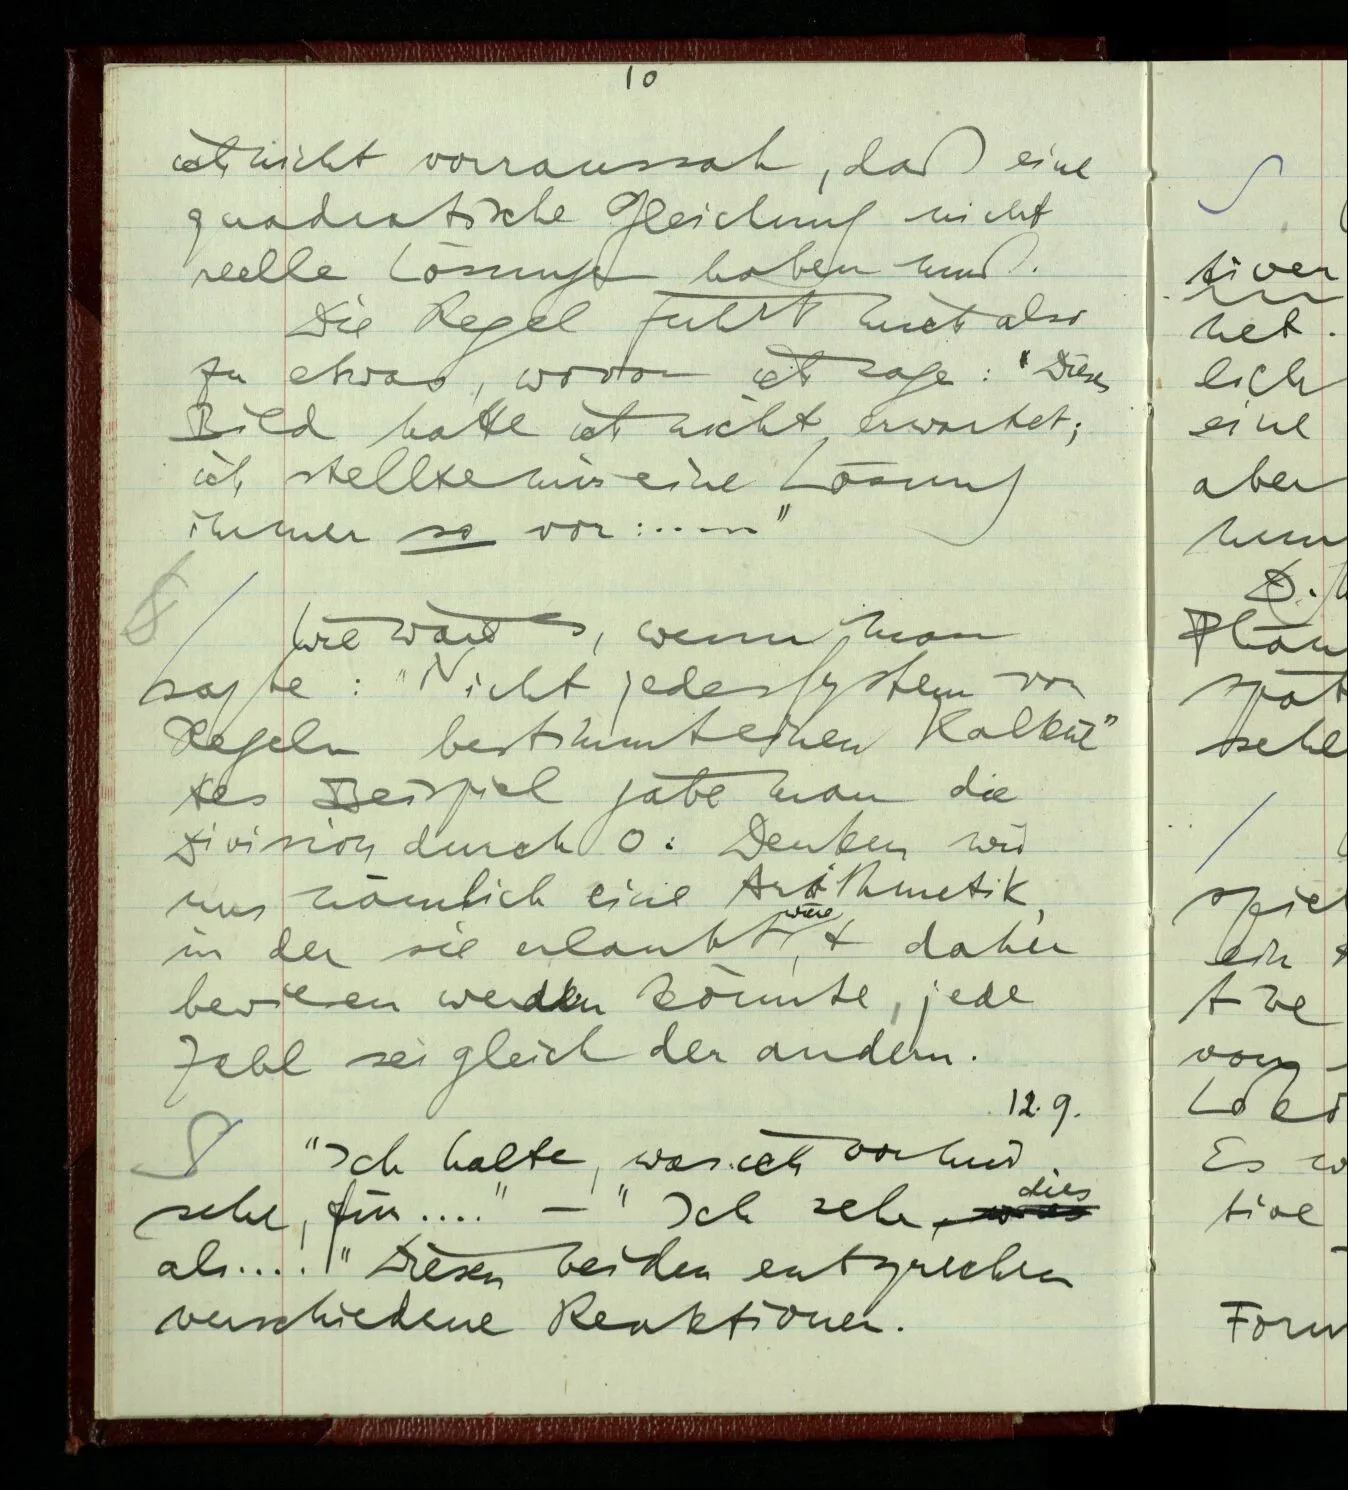 10
ich nicht vorraussah, daß eine
quadratische Gleichung nicht
reelle Lösungen haben muß.
Die Regel führt mich also
zu etwas, wovon ich sage: "Dieses
Bild hatte ich nicht erwartet;
ich stellte mir eine Lösung
immer so vor:....."
Wie wäre es, wenn man
sagte: "Nicht jedes System von
Regeln bestimmt einen Kalkül"
Als Beispiel gäbe man die
Division durch 0: Denken wir
uns nämlich eine Arithmetik,
in der sie erlaubt wäre, & daher
bewiesen werden könnte, jede
Zahl sei gleich der andern.
12.9.
"Ich halte, was ich vor mir
sehe, für...." – "Ich sehe dies
als....!" Diesen beiden entsprechen
verschiedene Reaktionen.
tiver
net.
lich
eine
aber
spät
sehe
spiel
ein
von
Es
tive
Form